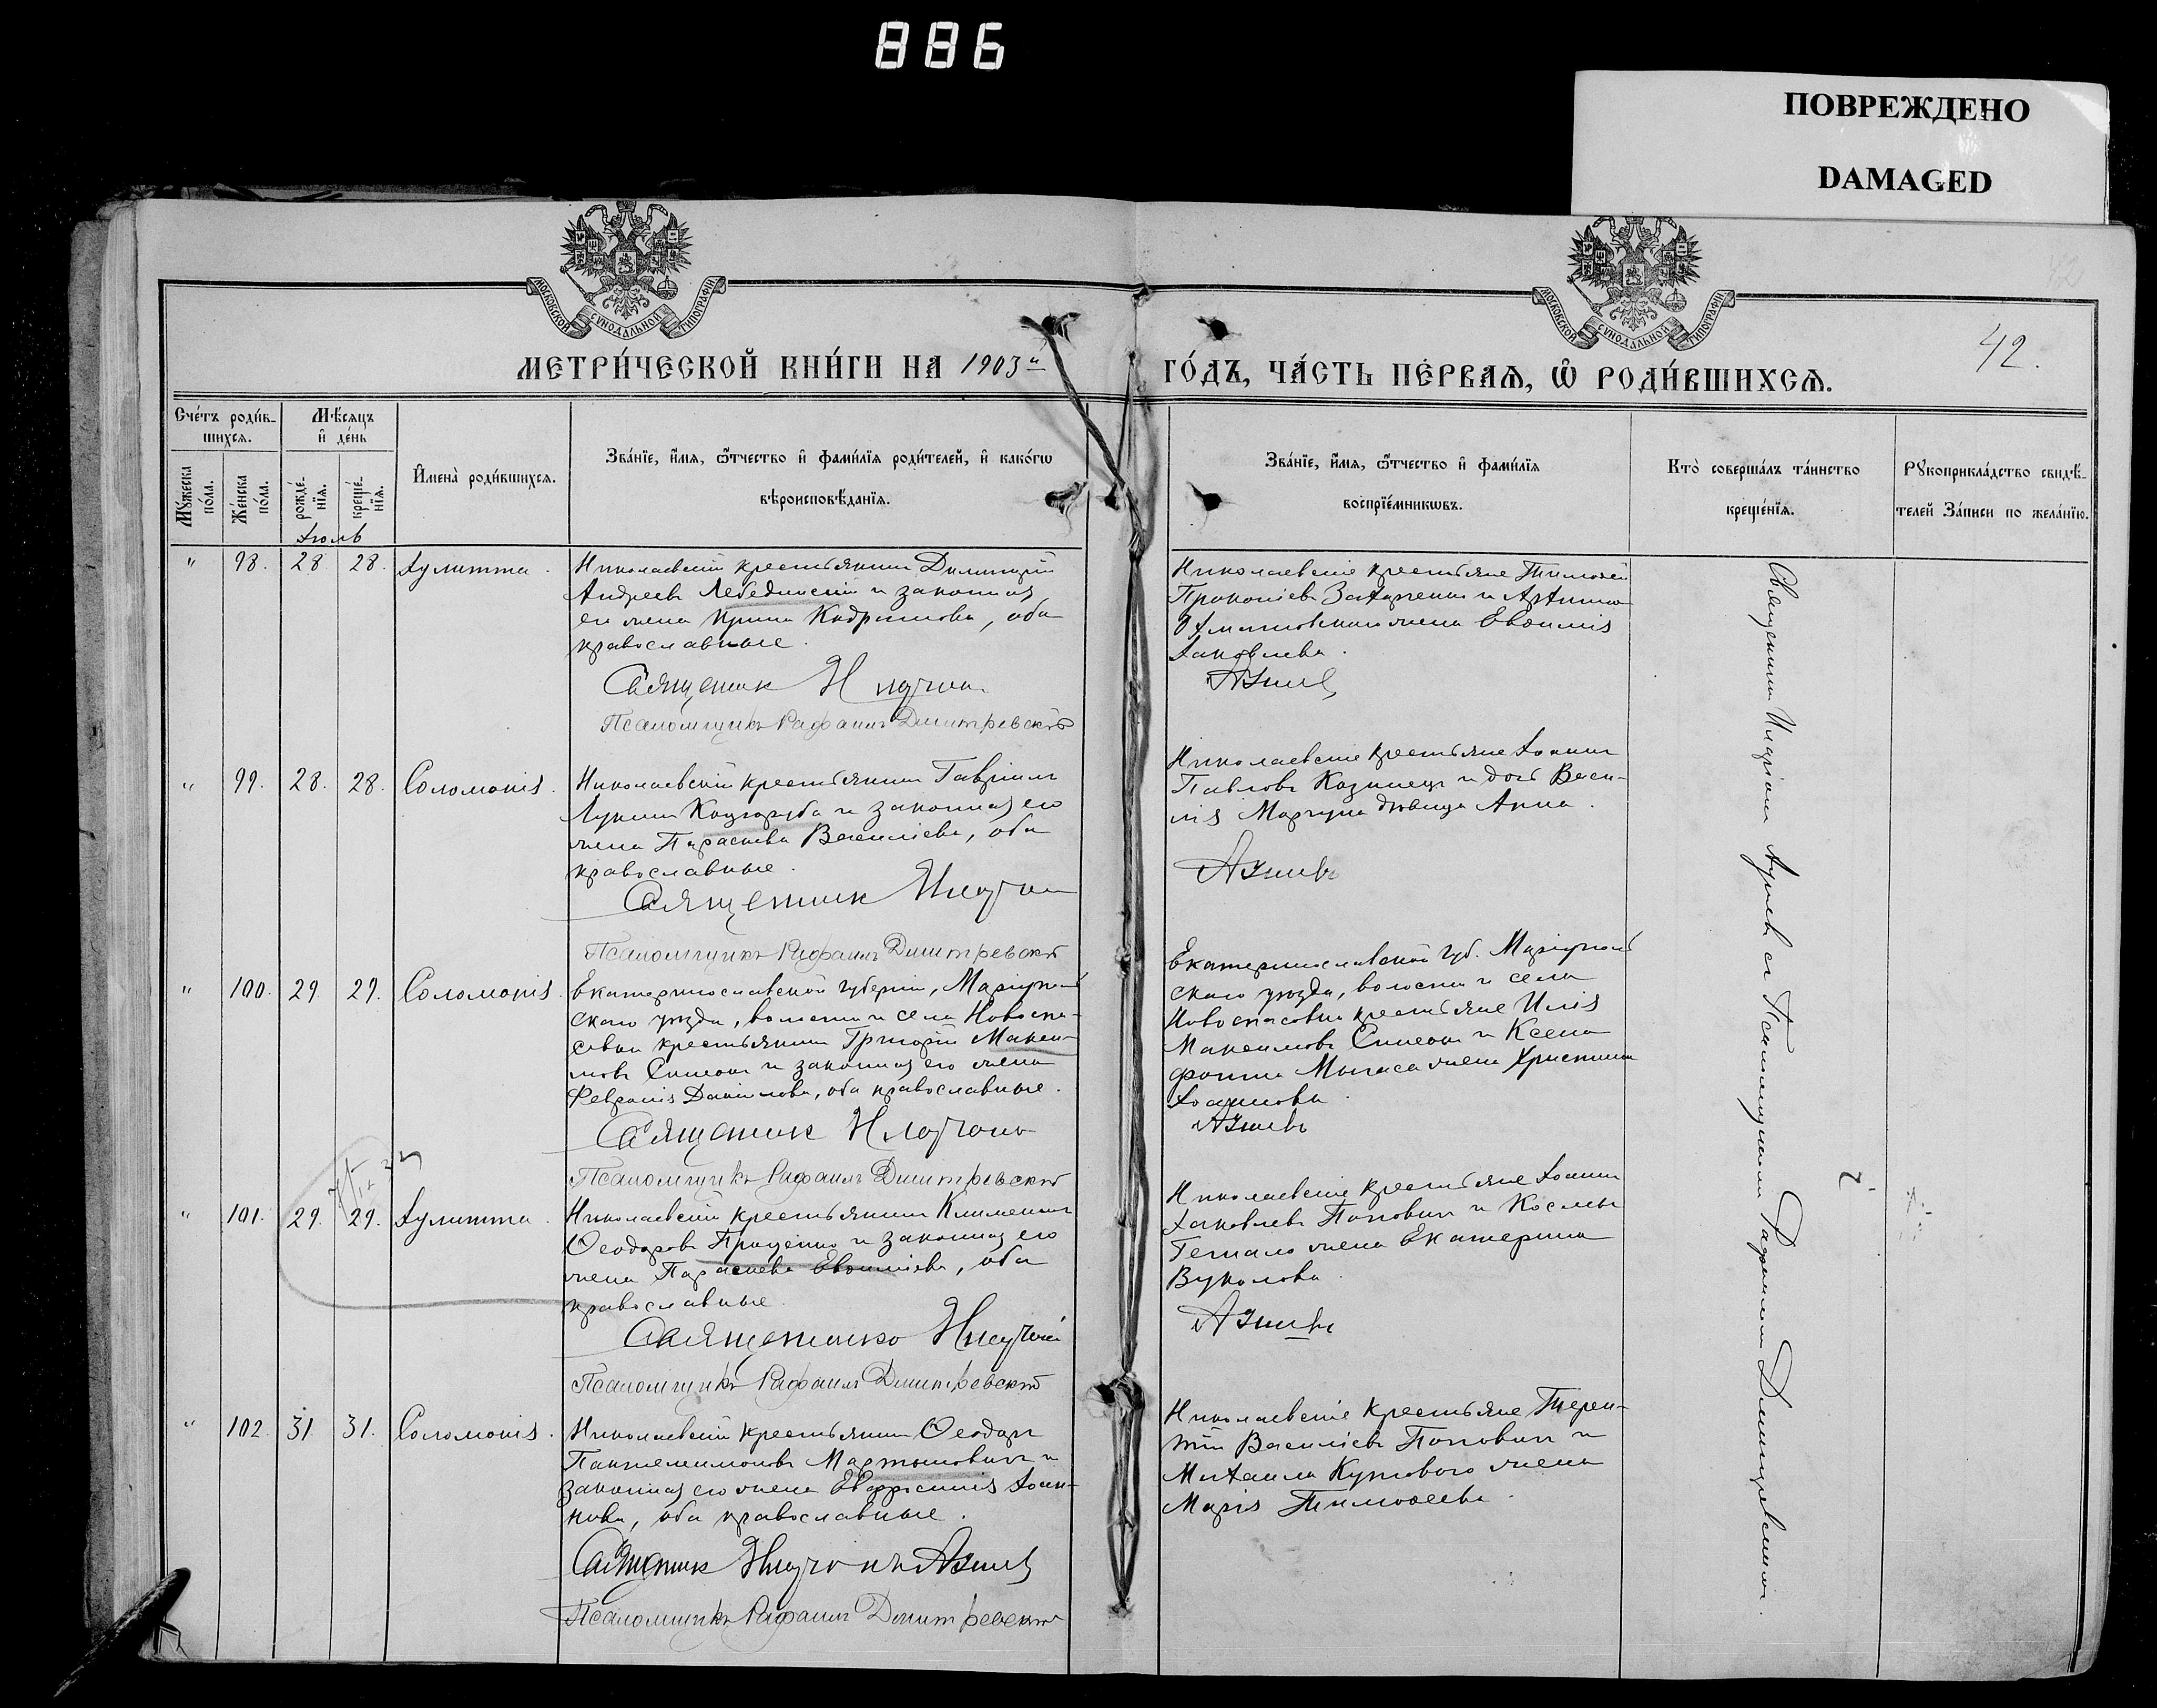 886
ПОВРЕЖДЕНО
DAMAGED
МОСКОВСКОЙ СѴНОДАЛЬНОЙ ТИПОГРАФІИ
МОСКОВСКОЙ СѴНОДАЛЬНОЙ ТИПОГРАФІИ
42.
МЕТРИ́ЧЕСКОЙ КНИ́ГИ НА 1903й
ГО́ДЪ, ЧА́СТЬ ПЕ́РВАѦ, Ѽ РОДИ́ВШИХСѦ.
Сче́тъ роди́в-
шихсѧ.
Мѣ́сѧцъ
и҆ де́нь
Мꙋ́жеска по́ла.
Же́нска по́ла.
рожде́-нїѧ.
креще́-нїѧ.
И҆мена̀ роди́вшихсѧ.
Зва́нїе, и҆́мѧ, ѻ҆́тчество и҆ фами́лїѧ роди́телей, и҆ како́гѡ
вѣроисповѣ́данїѧ.
Зва́нїе, и҆́мѧ, ѻ҆́тчество и҆ фами́лїѧ
воспрїе́мникѡвъ.
Кто̀ соверша́лъ та́инство
креще́нїѧ.
Рꙋкоприкла́дство свидѣ́-
телей За́писи по жела́нїю.
Іюль
" 98. 28 28. Іулитта.
Николаевскій крестьянинъ Димитрій
Андреевъ Лебединскій и законная
его жена Ирина Кодратова, оба
православные.
Священник
Псаломщикъ Рафаилъ Димитревскій
Николаевскіе крестьяне Тимофей
Прокопіевъ Захарченко и
жена Евфимія
Іаковлева.
Азиев
" 99. 28. 28. Соломонія.
Николаевскій крестьянинъ Гавріилъ
Лукинъ Коцюруба и законная его
жена Параскева Василіева, оба
православные.
Священник
Псаломщикъ Рафаилъ Димитревскій
Николаевскіе крестьяне Іоаннъ
Павловъ Казинецъ и дочь Васи-
лія дѣвица Анна.
" 100. 29. 29. Соломонія.
Екатеринославской губерніи, Маріуполь
скаго уѣзда, волости и села Новоспа-
совки крестьянинъ Григорій Макси-
мовъ Симеонъ и законная его жена
Февронія Даніилова, оба православные.
Священник
Псаломщикъ Рафаилъ Димитревскій
Екатеринославской губ. Маріуполь
скаго уѣзда, волости и села
Новоспасовки крестьяне Илія
Максимовъ Симеонъ и Ксено-
фонта жена Христина
Іоаннова.
" 101. 29. 29. Іулитта.
Николаевскій крестьянинъ Климентъ
Ѳеодоровъ Проценко и законная его
жена Параскева Евфиміева, оба
православные.
Священник
Псаломщикъ Рафаилъ Димитревскій
Николаевскіе крестьяне Іоаннъ
Іаковлевъ Поповичъ и Космы
жена Екатерина
Вуколова.
" 102. 31 31. Соломонія.
Николаевскій крестьянинъ Ѳеодоръ
Пантелеимоновъ Мартыновичъ и
законная его жена Евфросинія Іоан-
нова, оба православные.
Псаломщикъ Рафаилъ Димитревскій
Николаевскіе крестьяне Терен-
тій Василіевъ Поповичъ и
Михаила Кутового жена
Марія Тимофеева.
Священникъ Иларіонъ съ Псаломщикомъ Рафаиломъ Димитревскимъ.